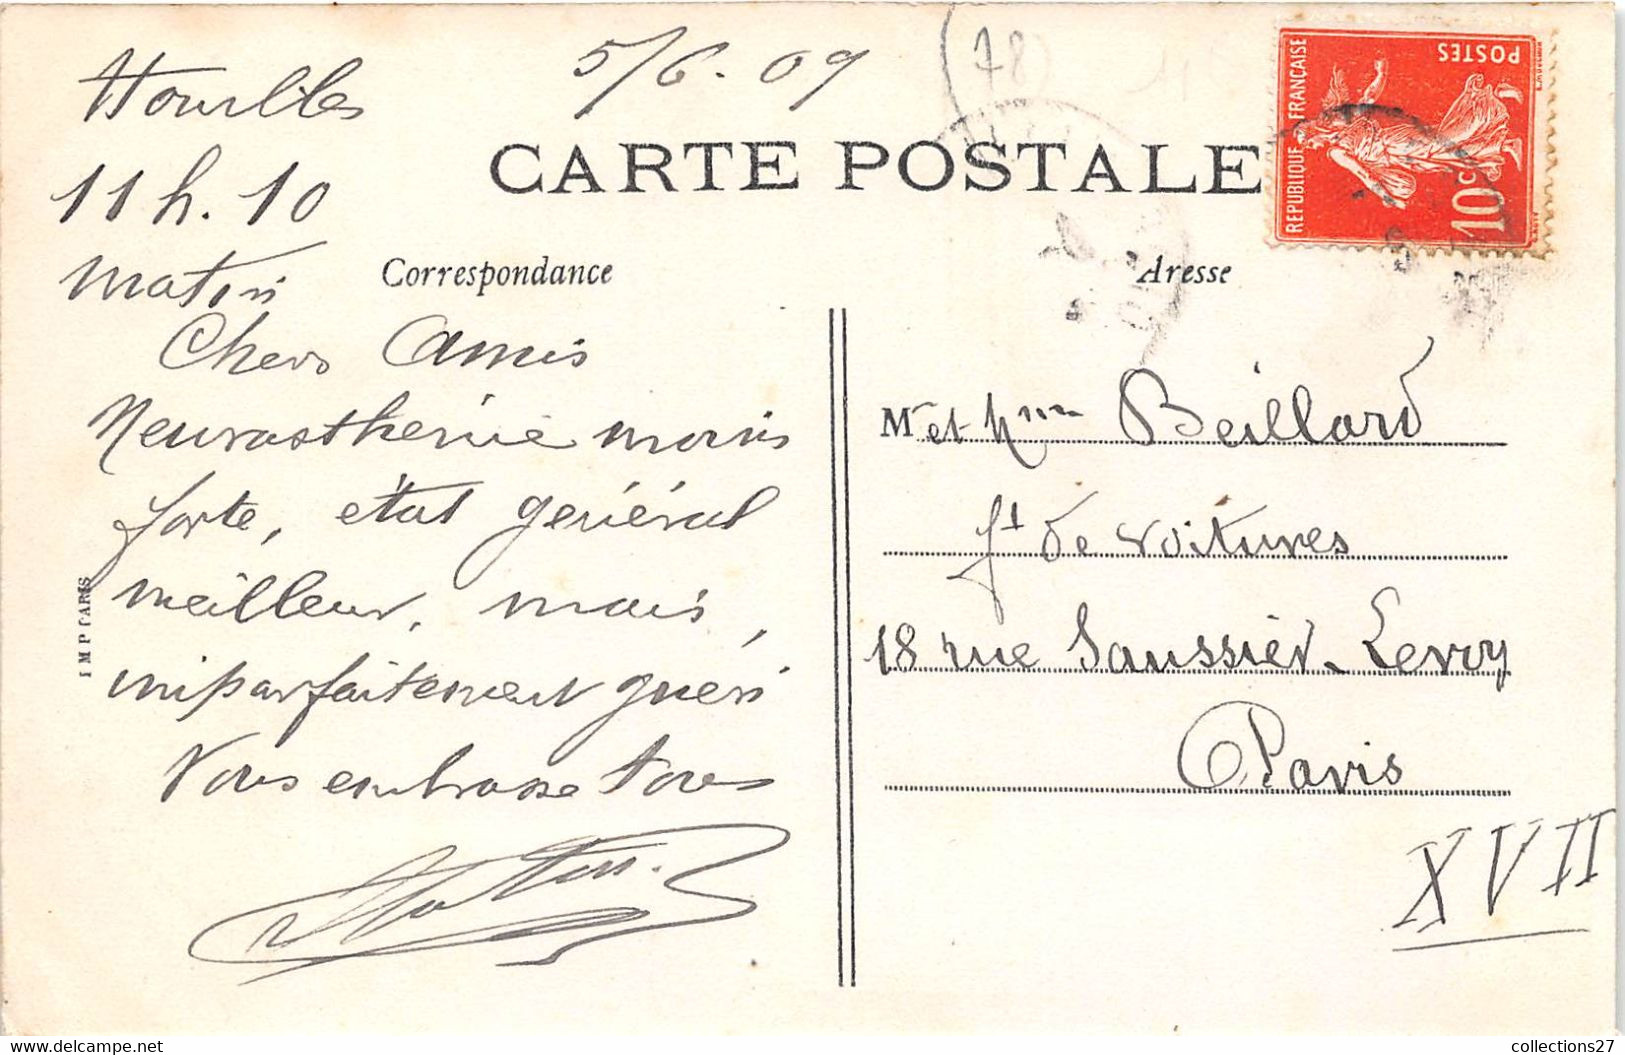 Houilles
5/6.09
11 h. 10
matin
CARTE POSTALE
Correspondance
Adresse
REPUBLIQUE FRANÇAISE
POSTES
10c
78
Chers Amis
Neurasthénie moins
forte, état général
meilleur, mais,
imparfaitement guéri
Vous embrasse tous
IMP PARIS
M et Mme Beillard
ft de voitures
18 rue Saussier-Leroy
Paris
XVII
collections27